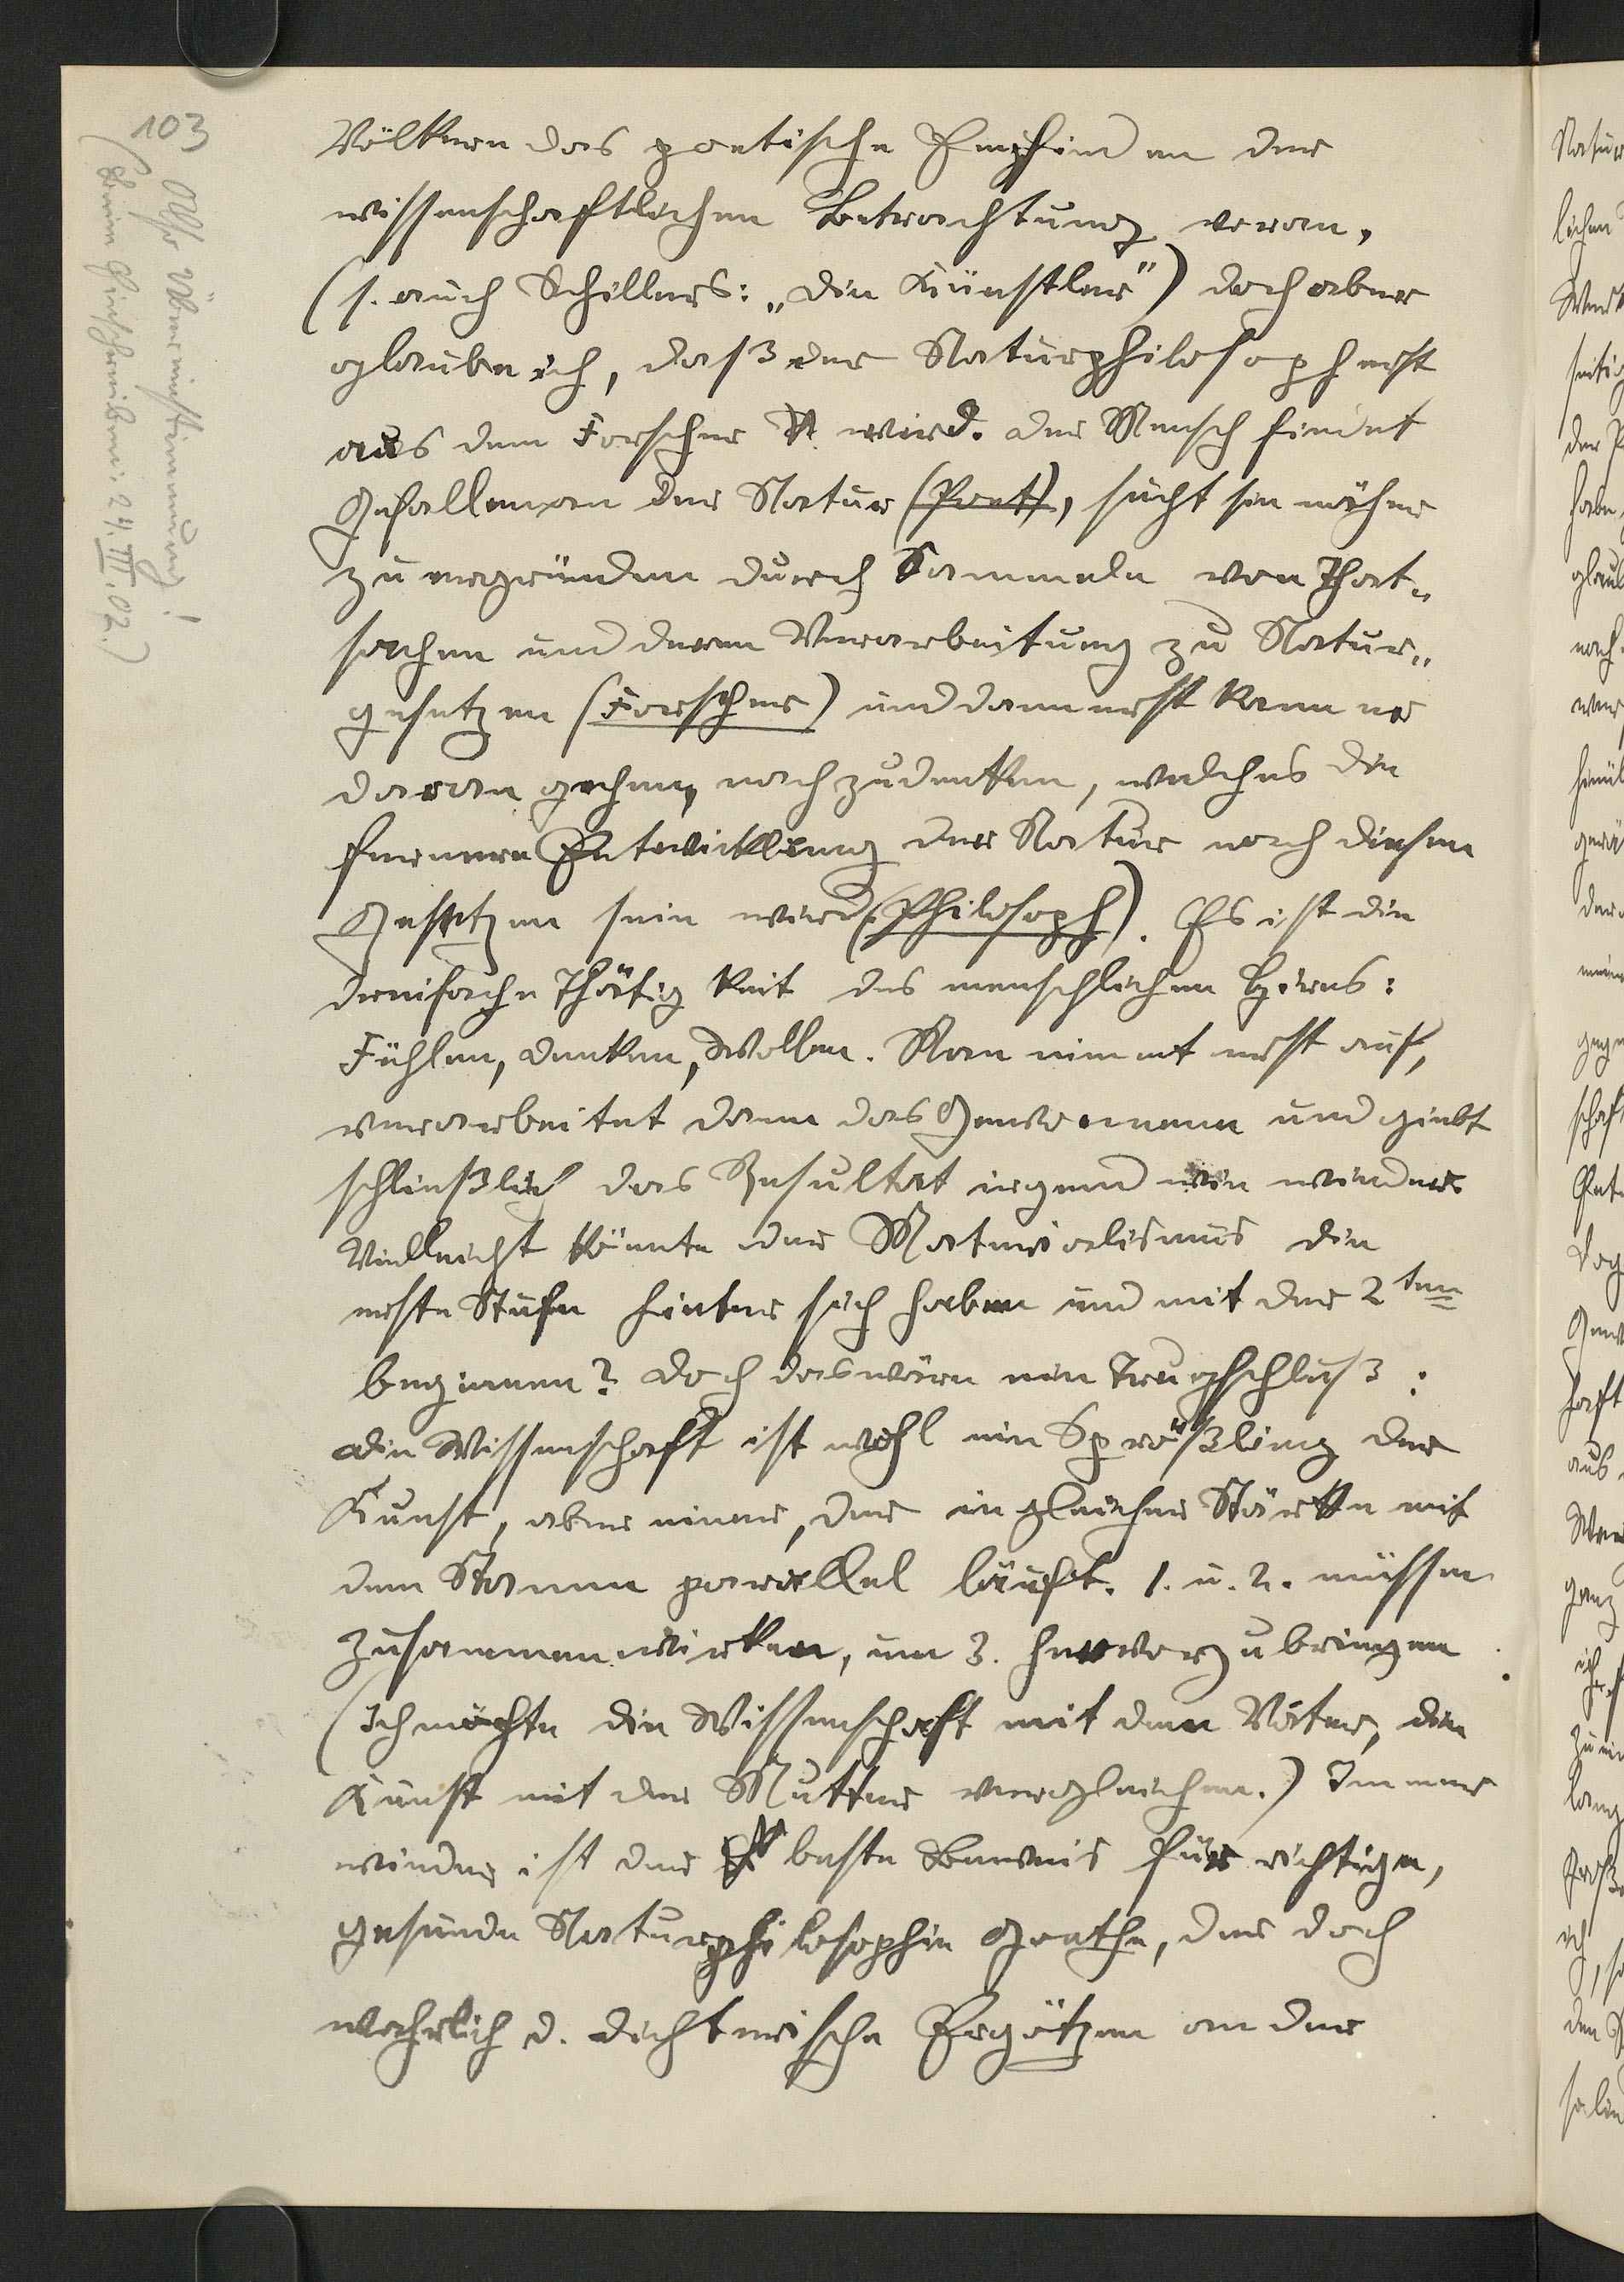 103
Also Übereinstimmung!
(Beim Einschreiben: 24. III. 02.)
Völkern das poetische Empfinden der
wissenschaftlichen Betrachtung voran,
(s. auch Schillers: „die Künstler") doch aber
glaube ich, daß der Naturphilosoph erst
aus dem Forscher wird. Der Mensch findet
Gefallen an der Natur (Poet), sucht sie näher
zu ergründen durch Sammeln von That„
sachen und deren Verarbeitung zu Natur„
gesetzen (Forscher) und dann erst kann er
daran gehen, nachzudenken, welches die
fernere Entwicklung der Natur nach diesen
Gesetzen sein wird (Philosoph). Es ist die
dreifache Thätigkeit des menschlichen Hirns:
Fühlen, Denken, Wollen. Man nimmt erst auf,
verarbeitet dann das Genommene und giebt
schließlich das Resultat irgend wie wieder.
Vielleicht könnte der Materialismus die
erste Stufe hinter sich haben und mit der 2ten
beginnen? Doch das wäre ein Trugschluß:
die Wissenschaft ist wohl ein Sprößling der
Kunst, aber einer, der in gleicher Stärke mit
dem Stamme parallel läuft. 1. u. 2. müssen
zusammenwirken, um 3. hervorzubringen
(Ich möchte die Wissenschaft mit dem Vater, die
Kunst mit der Mutter vergleichen.) Immer
wieder ist der beste Beweis für richtige,
gesunde Naturphilosophie Goethe, der doch
wahrlich d. dichterische Ergötzen an der